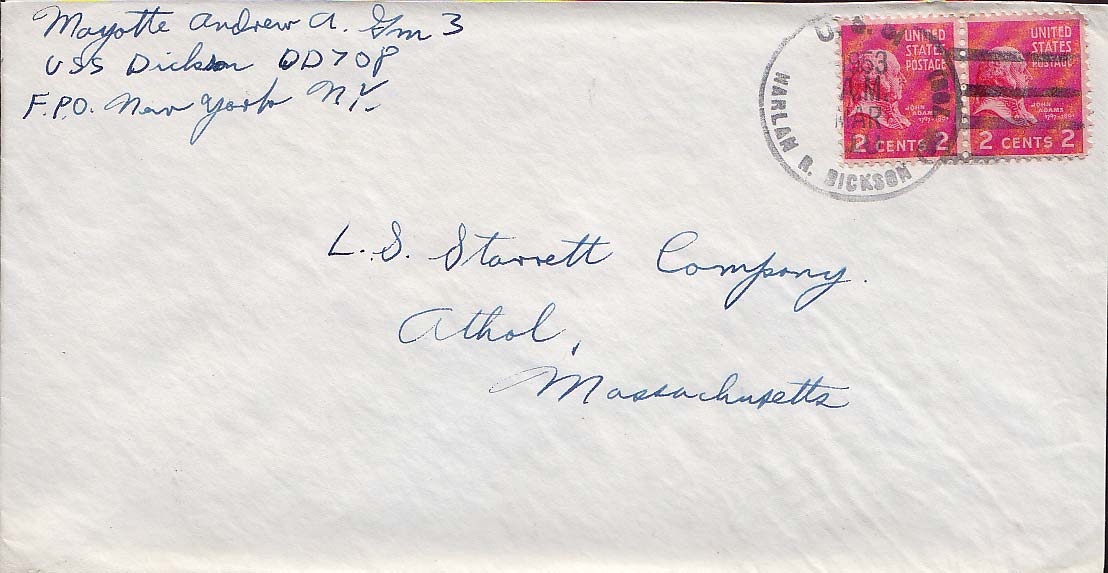 Mayotte Andrew A. Gm 3
USS Dickson DD708
F.P.O. New York N.Y.
U. S. S.
1953
A.M.
MAR
HARLAN R. DICKSON
UNITED
STATES
POSTAGE
JOHN
ADAMS
1797-1801
2 CENTS 2
UNITED
STATES
POSTAGE
JOHN
ADAMS
1797-1801
2 CENTS 2
L.S. Starrett Company.
Athol,
Massachusetts